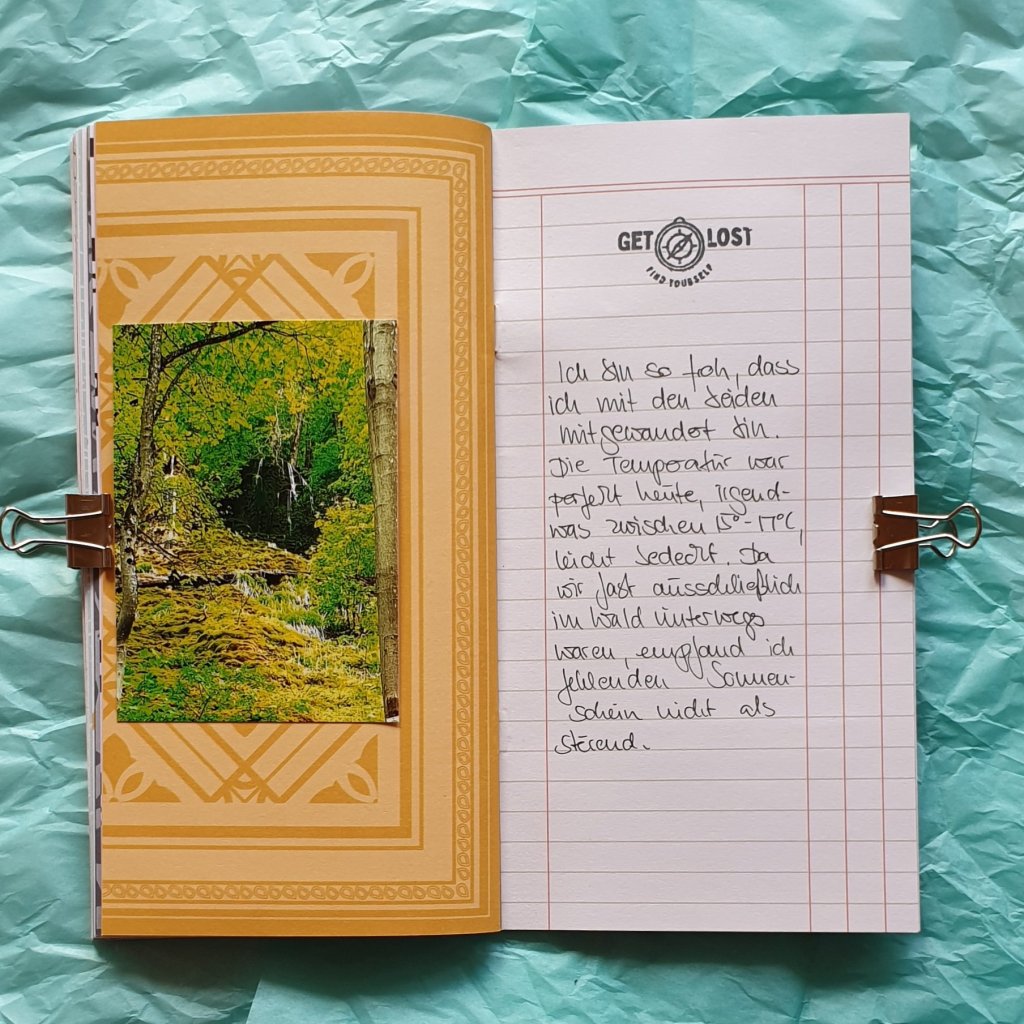 GET LOST
FIND YOURSELF
Ich bin so froh, dass
ich mit den beiden
mitgewandert bin.
Die Temperatur war
perfekt heute, irgend-
was zwischen 15°-17°C,
leicht bedeckt. Da
wir fast ausschließlich
im Wald unterwegs
waren, empfand ich
fehlenden Sonnen-
schein nicht als
störend.